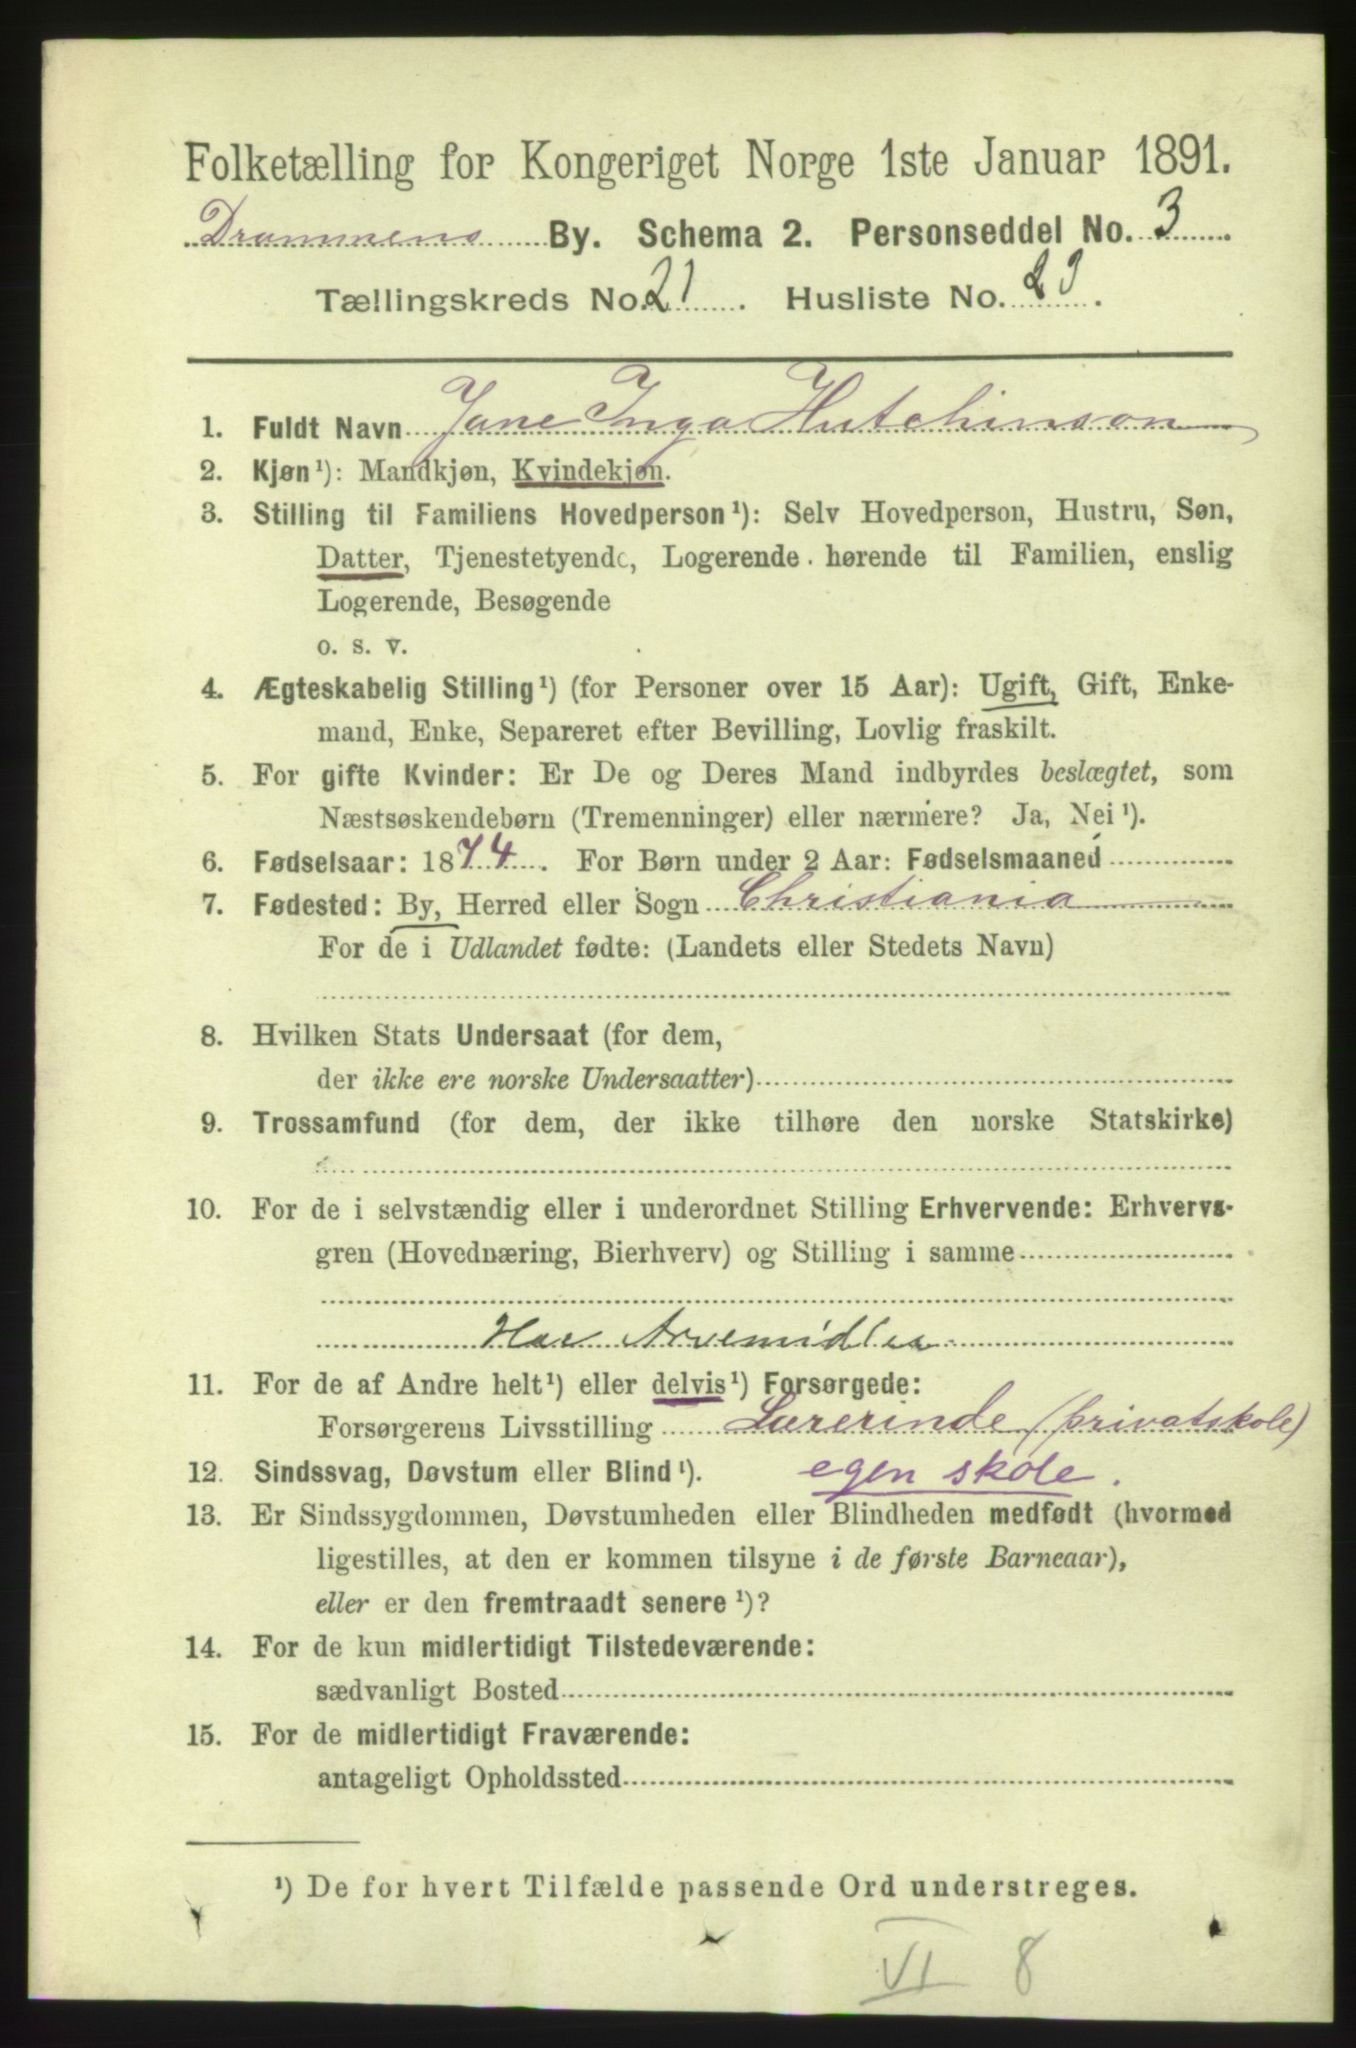 Folketælling for Kongeriget Norge 1ste Januar 1891.
Drammens By. Schema 2. Personseddel No. 3
Tællingskreds No. 21. Husliste No. 23.
1. Fuldt Navn Jane Inga Hutchinson
2. Kjøn¹): Mandkjøn, Kvindekjøn.
3. Stilling til Familiens Hovedperson¹): Selv Hovedperson, Hustru, Søn,
Datter, Tjenestetyende, Logerende hørende til Familien, enslig
Logerende, Besøgende
o. s. v.
4. Ægteskabelig Stilling¹) (for Personer over 15 Aar): Ugift, Gift, Enke-
mand, Enke, Separeret efter Bevilling, Lovlig fraskilt.
5. For gifte Kvinder: Er De og Deres Mand indbyrdes beslægtet, som
Næstsøskendebørn (Tremenninger) eller nærmere? Ja, Nei¹).
6. Fødselsaar: 1874. For Børn under 2 Aar: Fødselsmaaned
7. Fødested: By, Herred eller Sogn Christiania
For de i Udlandet fødte: (Landets eller Stedets Navn)
8. Hvilken Stats Undersaat (for dem,
der ikke ere norske Undersaatter)
9. Trossamfund (for dem, der ikke tilhøre den norske Statskirke)
10. For de i selvstændig eller i underordnet Stilling Erhvervende: Erhvervs-
gren (Hovednæring, Bierhverv) og Stilling i samme
Har Arvemidler
11. For de af Andre helt¹) eller delvis¹) Forsørgede:
Forsørgerens Livsstilling Lærerinde (privatskole)
12. Sindssvag, Døvstum eller Blind¹). egen skole.
13. Er Sindssygdommen, Døvstumheden eller Blindheden medfødt (hvormed
ligestilles, at den er kommen tilsyne i de første Barneaar),
eller er den fremtraadt senere¹)?
14. For de kun midlertidigt Tilstedeværende:
sædvanligt Bosted
15. For de midlertidigt Fraværende:
antageligt Opholdssted
¹) De for hvert Tilfælde passende Ord understreges.
VI 8